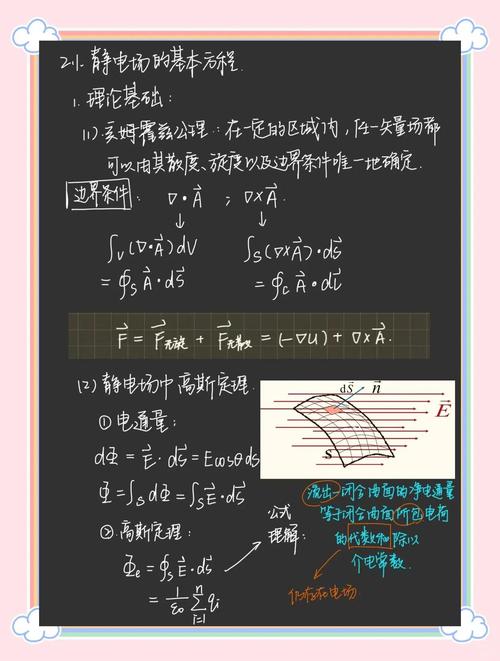 2.1. 静电场的基本方程.
1. 理论基础:
(1) 亥姆霍兹公理: 在一定的区域内, 任一矢量场都
可以由其散度、旋度以及边界条件唯一地确定.
边界条件: ∇·A⃗ ; ∇×A⃗
↓ ↓
∫v(∇·A⃗)dV ∫s(∇×A⃗)·ds⃗
= ∮s A⃗·ds⃗ = ∮c A⃗·dl
F⃗ = F⃗无旋 + F⃗无散 = (-∇U) + ∇×A⃗.
(2) 静电场中高斯定理.
① 电通量:
dΦ = E⃗·ds⃗ = Ecosθds
Φ = ∫s dΦ = ∫s E⃗·ds⃗
dS⃗ n⃗
E⃗
S
② 高斯定理:
Φe = ∮s E⃗·ds⃗
= 1/ε₀ ∑ⁿᵢ₌₁ qi
公式
理解:
流出一闭合曲面的净电通量
等于闭合曲面所包电荷
的代数和除以
介电常数.
仍存在电场